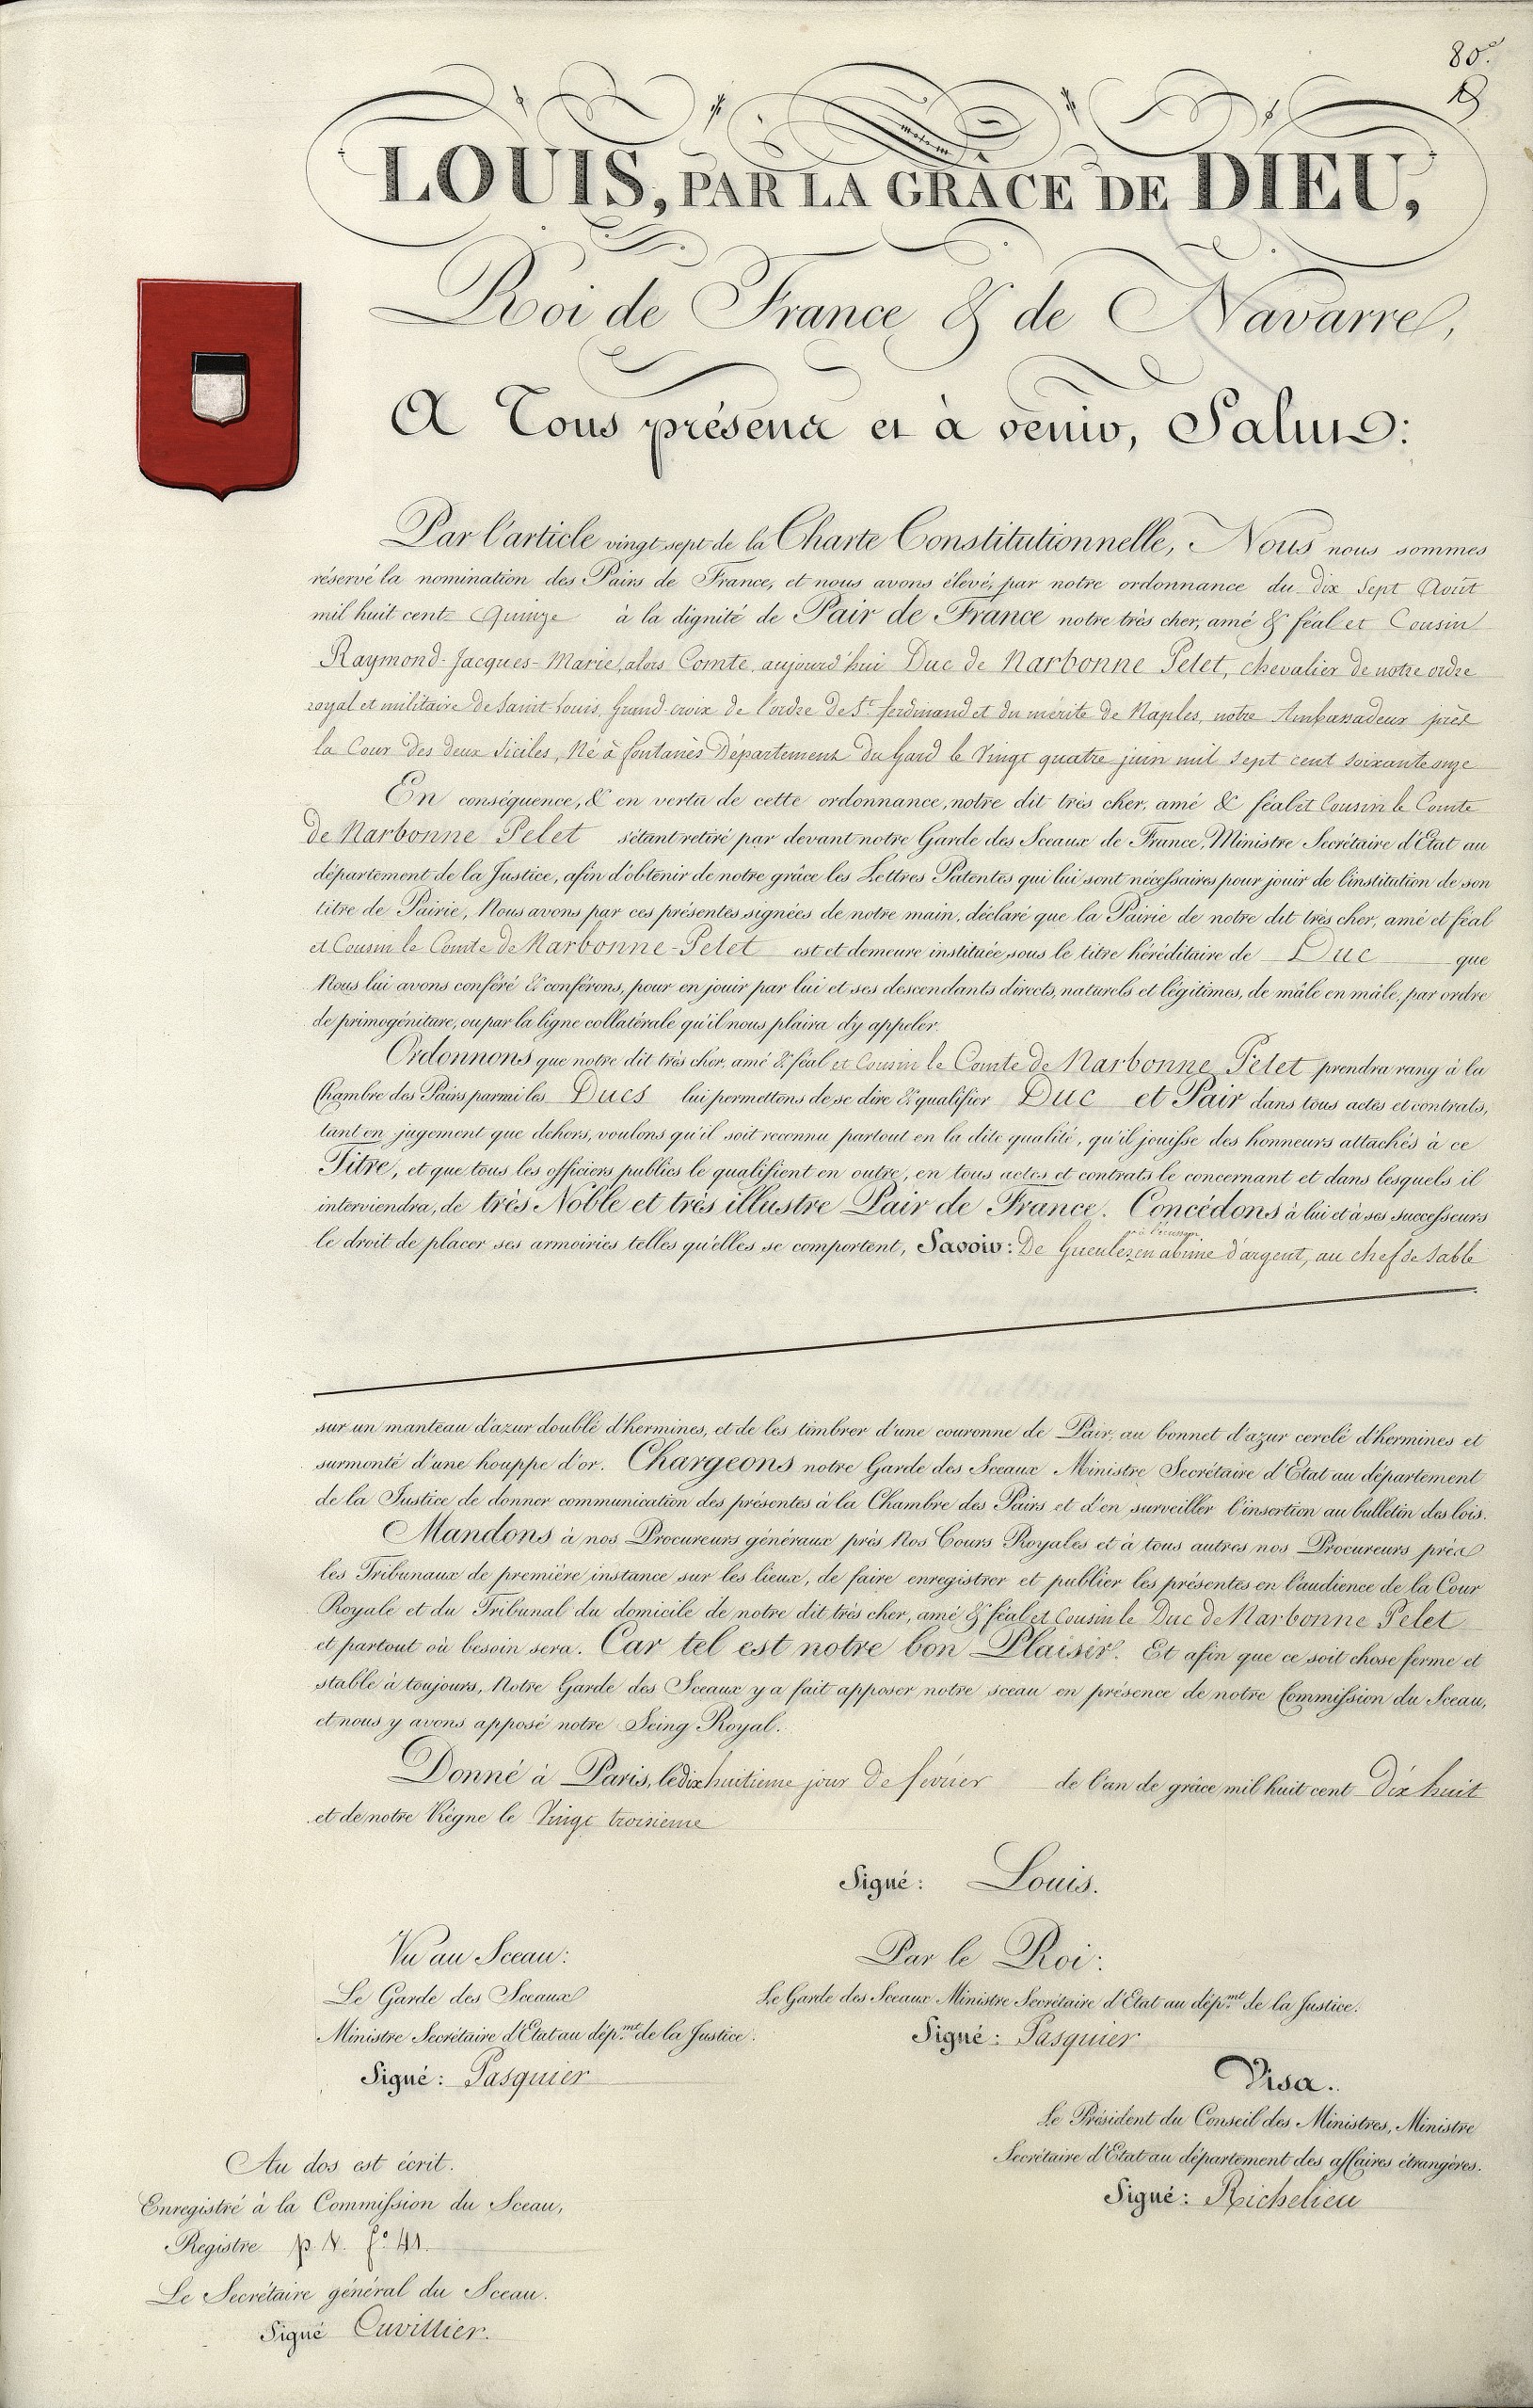 80.e
LOUIS, PAR LA GRÂCE DE DIEU,
Roi de France & de Navarre,
A Tous présens et à venir, Salut:
Par l'article vingt sept de la Charte Constitutionnelle, Nous nous sommes
réservé la nomination des Pairs de France, et nous avons élevé, par notre ordonnance du dix Sept Août
mil huit cent Quinze à la dignité de Pair de France notre très cher, amé & féal et Cousin
Raymond-Jacques-Marie, alors Comte, aujourd'hui Duc de Narbonne Pelet, chevalier de notre ordre
royal et militaire de Saint Louis, Grand-croix de l'ordre de St. ferdinand et du mérite de Naples, notre Ambassadeur près
la Cour des deux Siciles, Né à fontanès Département du Gard le Vingt quatre juin mil sept cent soixante onze
En conséquence, & en vertu de cette ordonnance, notre dit très cher, amé & féal et Cousin le Comte
de Narbonne Pelet s'étant retiré par devant notre Garde des Sceaux de France, Ministre Secrétaire d'Etat au
département de la Justice, afin d'obtenir de notre grâce les Lettres Patentes qui lui sont nécessaires pour jouir de l'institution de son
titre de Pairie, Nous avons par ces présentes signées de notre main, déclaré que la Pairie de notre dit très cher, amé et féal
et Cousin le Comte de Narbonne-Pelet est et demeure instituée sous le titre héréditaire de Duc que
Nous lui avons conféré & conférons, pour en jouir par lui et ses descendants directs, naturels et légitimes, de mâle en mâle, par ordre
de primogéniture, ou par la ligne collatérale qu'il nous plaira d'y appeler.
Ordonnons que notre dit très cher, amé & féal et Cousin le Comte de Narbonne Pelet prendra rang à la
Chambre des Pairs parmi les Ducs lui permettons de se dire & qualifier Duc et Pair dans tous actes et contrats,
tant en jugement que dehors, voulons qu'il soit reconnu partout en la dite qualité, qu'il jouisse des honneurs attachés à ce
Titre, et que tous les officiers publics le qualifient en outre, en tous actes et contrats le concernant et dans lesquels il
interviendra, de très Noble et très illustre Pair de France. Concédons à lui et à ses successeurs
le droit de placer ses armoiries telles qu'elles se comportent, Savoir: De Gueules, à l'écusson en abime d'argent, au chef de Sable
sur un manteau d'azur doublé d'hermines, et de les timbrer d'une couronne de Pair, au bonnet d'azur cerclé d'hermines et
surmonté d'une houppe d'or. Chargeons notre Garde des Sceaux Ministre Secrétaire d'Etat au département
de la Justice de donner communication des présentes à la Chambre des Pairs et d'en surveiller l'insertion au bulletin des lois.
Mandons à nos Procureurs généraux près Nos Cours Royales et à tous autres nos Procureurs près
les Tribunaux de première instance sur les lieux, de faire enregistrer et publier les présentes en l'audience de la Cour
Royale et du Tribunal du domicile de notre dit très cher, amé & féal et Cousin le Duc de Narbonne Pelet
et partout où besoin sera. Car tel est notre bon Plaisir. Et afin que ce soit chose ferme et
stable à toujours, Notre Garde des Sceaux y a fait apposer notre sceau en présence de notre Commission du Sceau,
et nous y avons apposé notre Seing Royal.
Donné à Paris, le dix huitieme jour de février de l'an de grâce mil huit cent dix huit
et de notre Règne le Vingt troisieme
Signé: Louis.
Vu au Sceau:
Le Garde des Sceaux
Ministre Secrétaire d'Etat au dép.mt de la Justice.
Signé: Pasquier
Par le Roi:
Le Garde des Sceaux Ministre Secrétaire d'Etat au dép.mt de la Justice.
Signé: Pasquier
Visa.
Le Président du Conseil des Ministres, Ministre
Secrétaire d'Etat au département des affaires étrangères.
Signé: Richelieu
Au dos est écrit.
Enregistré à la Commission du Sceau,
Registre p. V. f.o 41.
Le Secrétaire général du Sceau.
Signé Cuvillier.